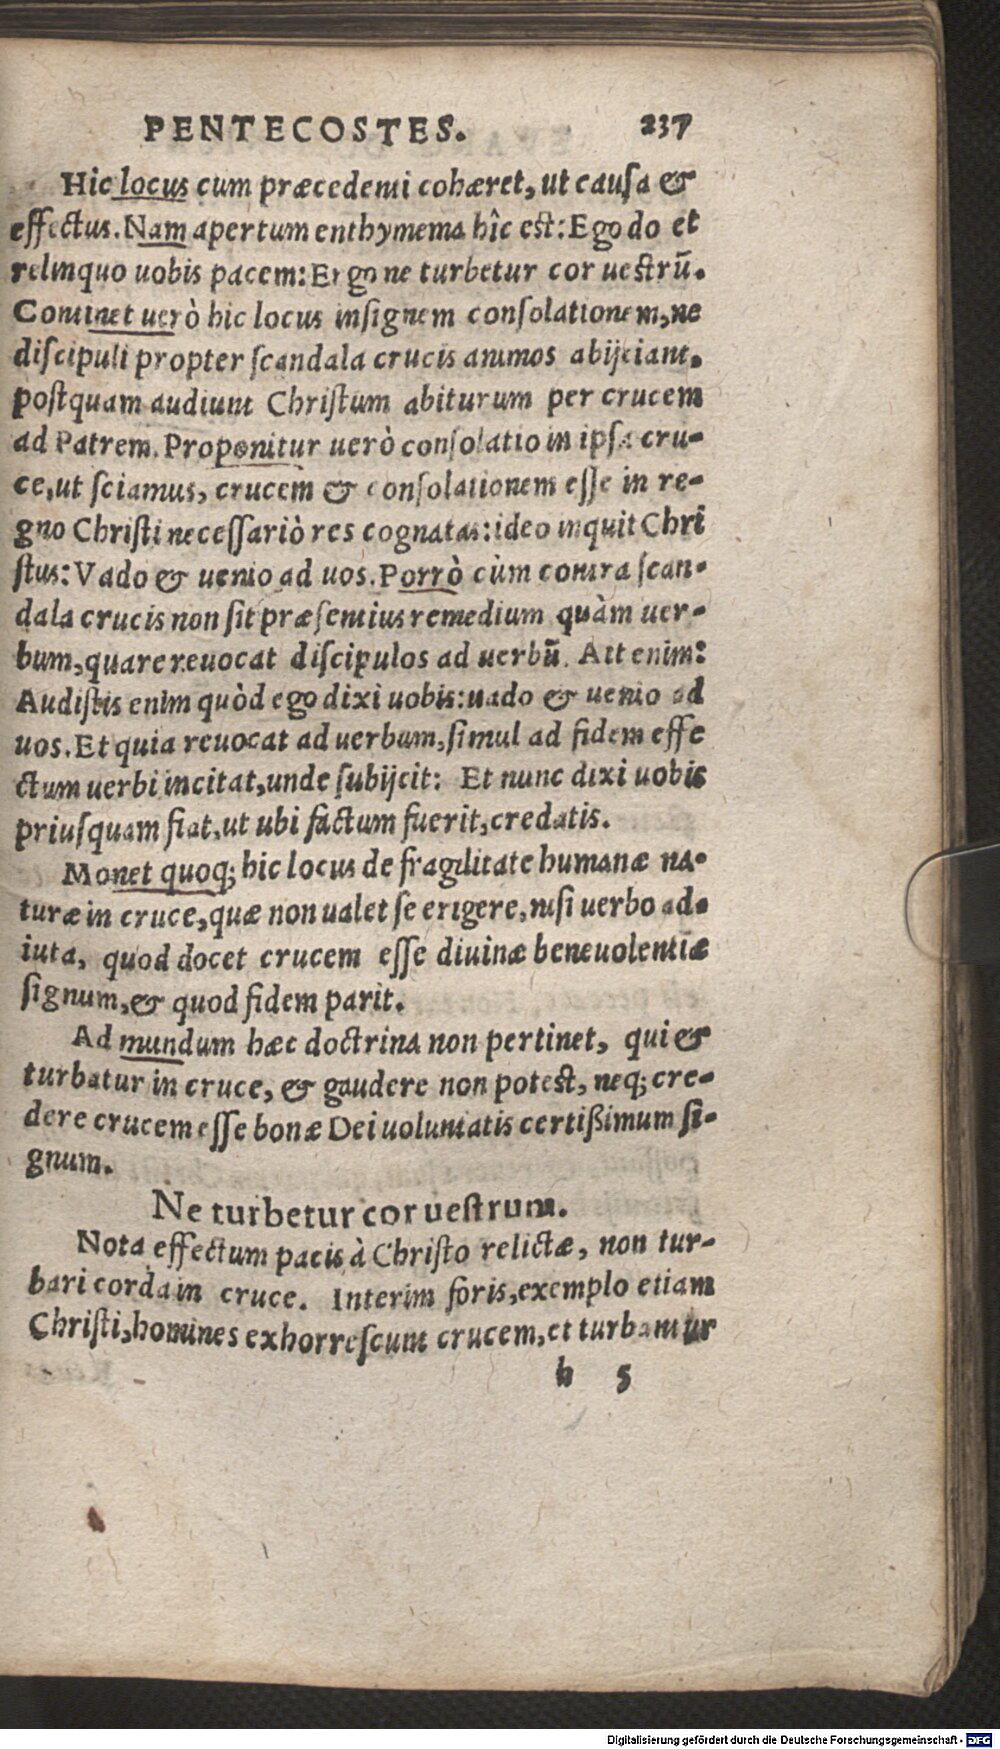 PENTECOSTES. 237
Hic locus cum præcedenti cohæret, ut causa &
effectus. Nam apertum enthymema hîc est: Ego do et
relinquo uobis pacem: Ergo ne turbetur cor uestrũ.
Continet uerò hic locus insignem consolationem, ne
discipuli propter scandala crucis animos abijciant.
postquam audiunt Christum abiturum per crucem
ad Patrem. Proponitur uerò consolatio in ipsa cru-
ce, ut sciamus, crucem & consolationem esse in re-
gno Christi necessariò res cognatas: ideo inquit Chri
stus: Vado & uenio ad uos. Porrò cùm contra scan-
dala crucis non sit præsentius remedium quàm uer-
bum, quare reuocat discipulos ad uerbũ. Ait enim:
Audistis enim quòd ego dixi uobis: uado & uenio ad
uos. Et quia reuocat ad uerbum, simul ad fidem effe
ctum uerbi incitat, unde subijcit: Et nunc dixi uobis
priusquam fiat, ut ubi factum fuerit, credatis.
Monet quoq; hic locus de fragilitate humanæ na-
turæ in cruce, quæ non ualet se erigere, nisi uerbo ad-
iuta, quod docet crucem esse diuinæ beneuolentiæ
signum, & quod fidem parit.
Ad mundum hæc doctrina non pertinet, qui &
turbatur in cruce, & gaudere non potest, neq; cre-
dere crucem esse bonæ Dei uoluntatis certißimum si-
gnum.
Ne turbetur cor uestrum.
Nota effectum pacis à Christo relictæ, non tur-
bari corda in cruce. Interim foris, exemplo etiam
Christi, homines exhorrescunt crucem, et turbantur
h 5
Digitalisierung gefördert durch die Deutsche Forschungsgemeinschaft - DFG